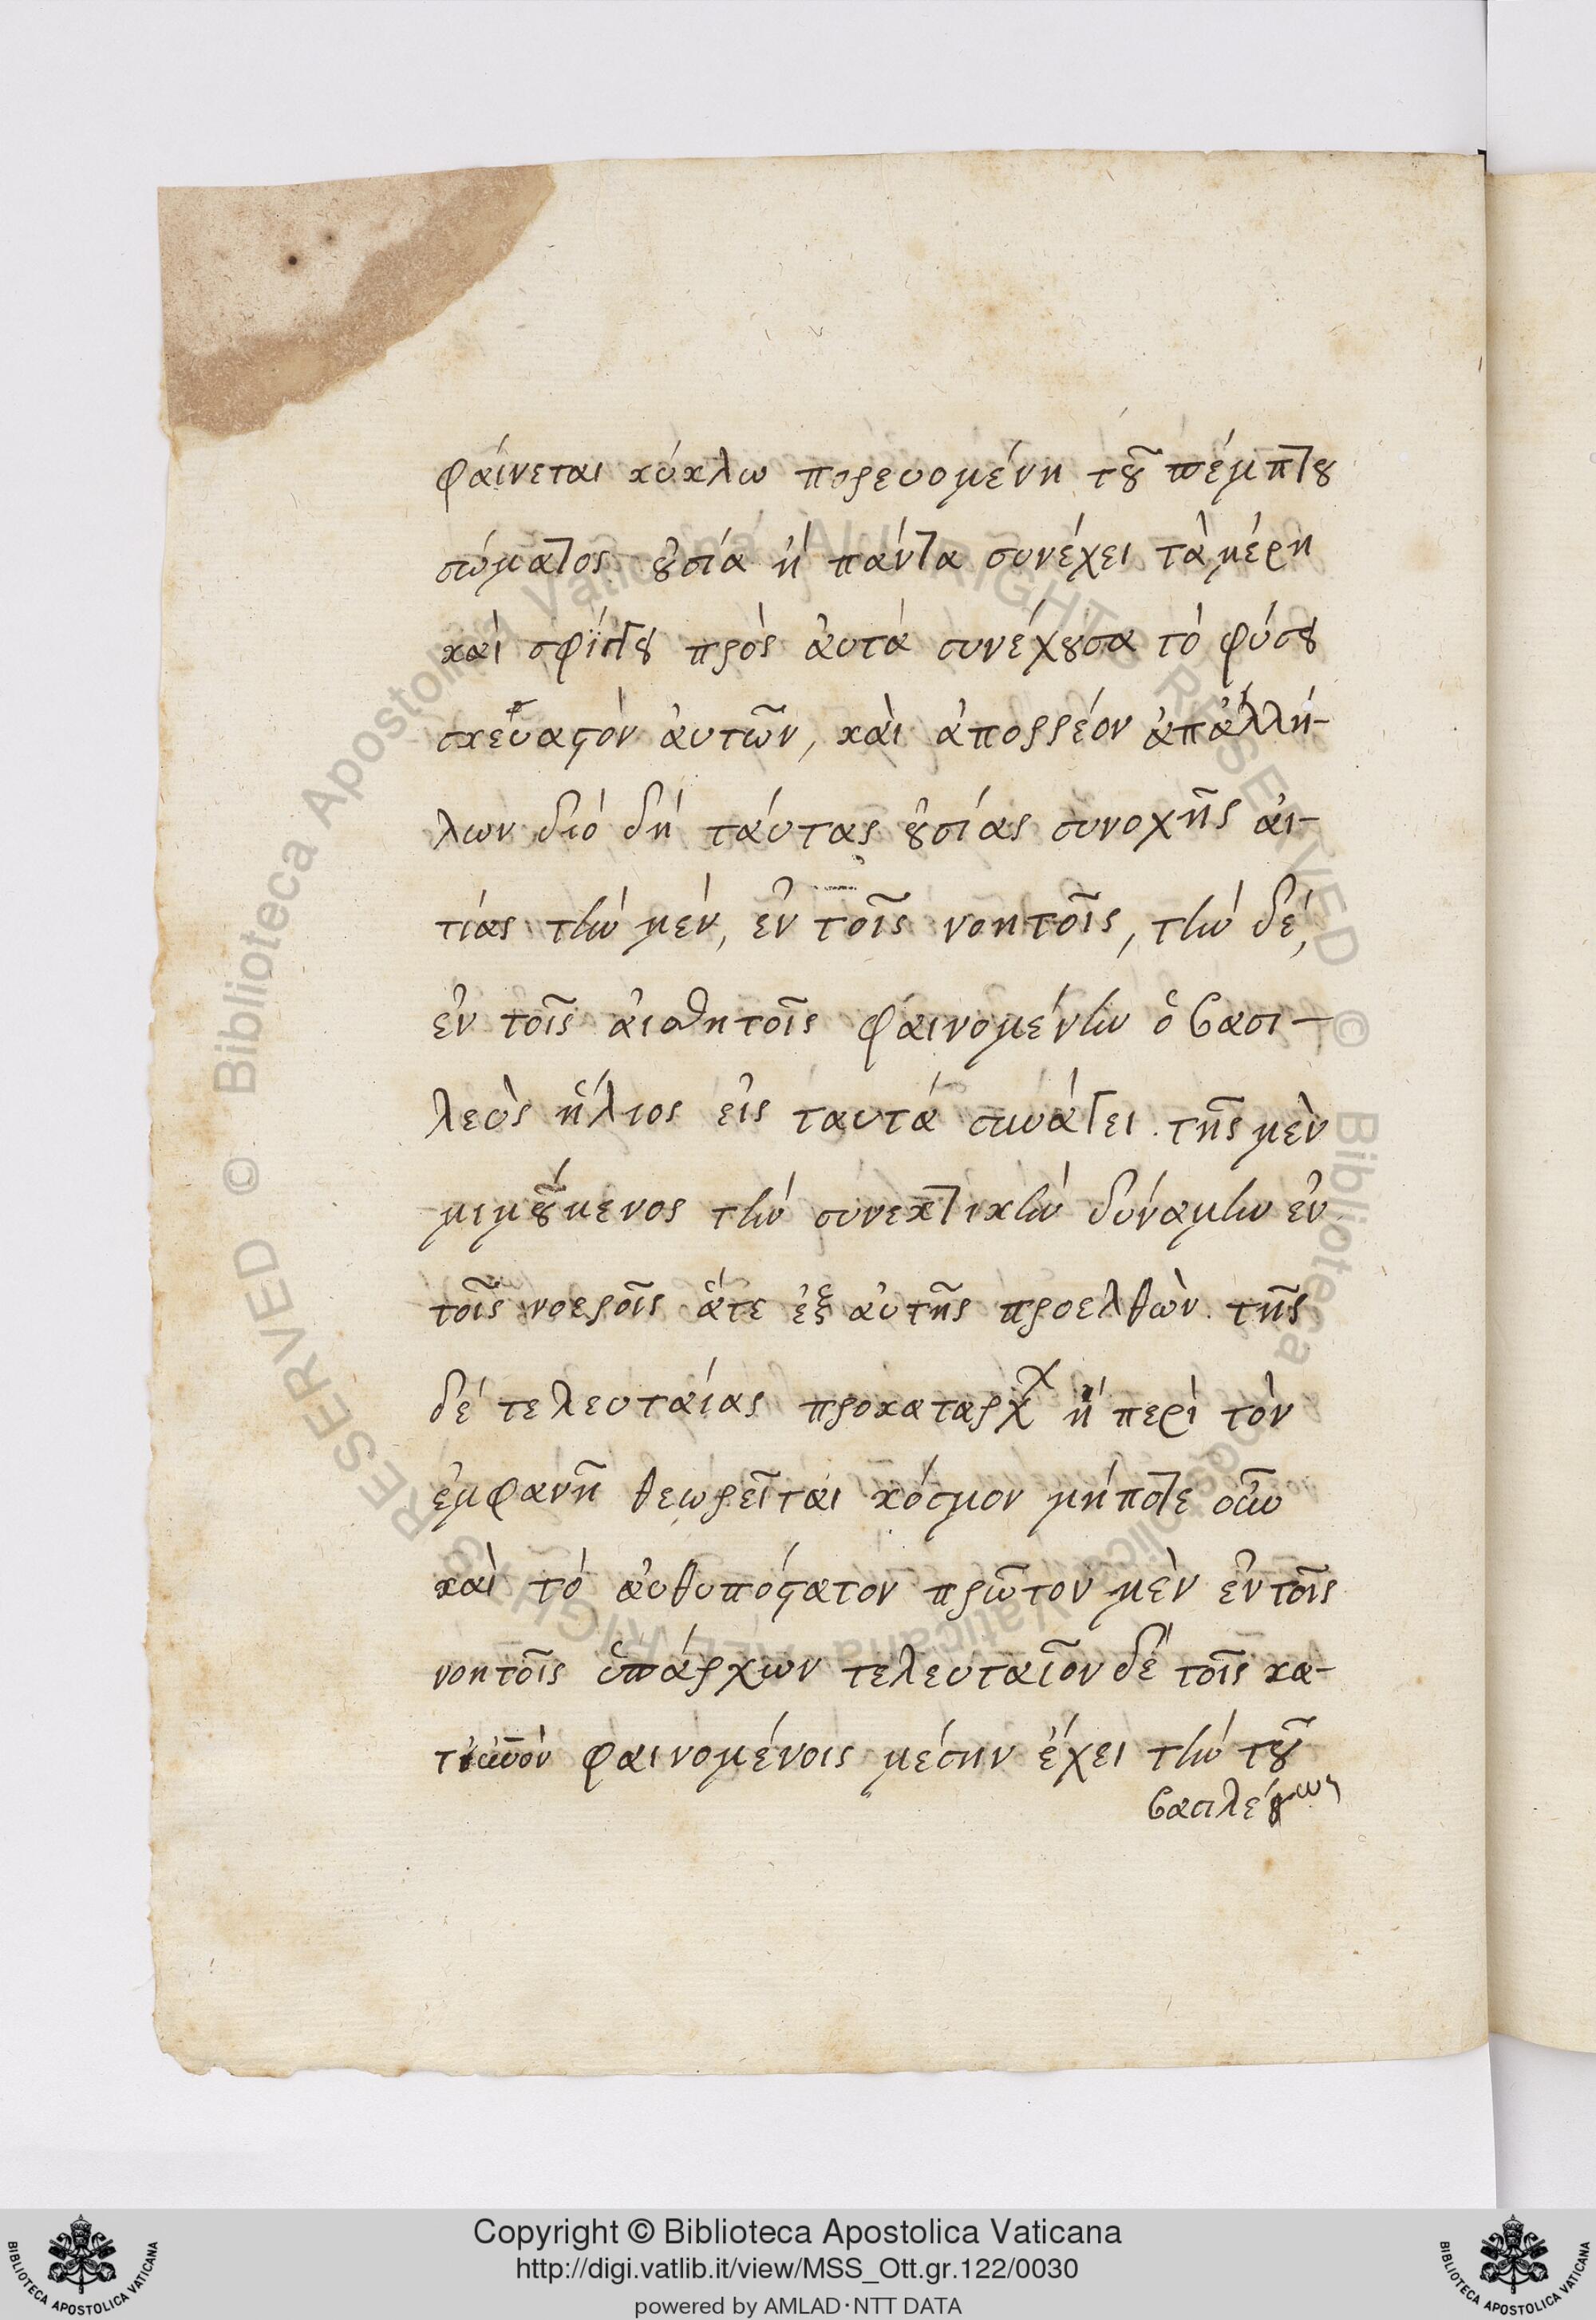 φαίνεται κύκλω πορευομένη τοῦ πέμπτου
σώματος οὐσία ἡ πάντα συνέχει τὰ μέρη
καὶ σφίγγ πρὸς ἀυτά συνέχουσα τὸ φύσει
σκεύαστὸν ἀυτῶν, καὶ ἀπορρέον ἀπἀλλή-
λων διό δή ταύτας οὐσίας συνοχῆς ἀι-
τίας τὴν μέν, ἐν τοῖς νοητοῖς, τὴν δέ,
ἐν τοῖς ἀισθητοῖς φαινομένην ὁ βασι-
λεὺς ἥλιος εἰς ταυτά συνάγει. τῆς μὲν
μιμούμενος τὴν συνεκτικὴν δύναμιν ἐν
τοῖς νοεροῖς ἅτε ἐξ αὐτῆς προελθὼν. τῆς
δέ τελευταίας προκαταρχ ἥ περὶ τὸν
ἐμφανῆ θεωρεῖται κόσμον μήποτε οὖν
καὶ τό ἀυθυπόστατον πρῶτον μὲν ἐν τοῖς
νοητοῖς ὑπάρχων τελευταῖον δέ τοῖς κα-
φαινομένοις μέσην ἔχει τὴν τοῦ
βασιλέως
Copyright © Biblioteca Apostolica Vaticana
http://digi.vatlib.it/view/MSS_Ott.gr.122/0030
powered by AMLAD·NTT DATA
BIBLIOTECA APOSTOLICA VATICANA
BIBLIOTECA APOSTOLICA VATICANA